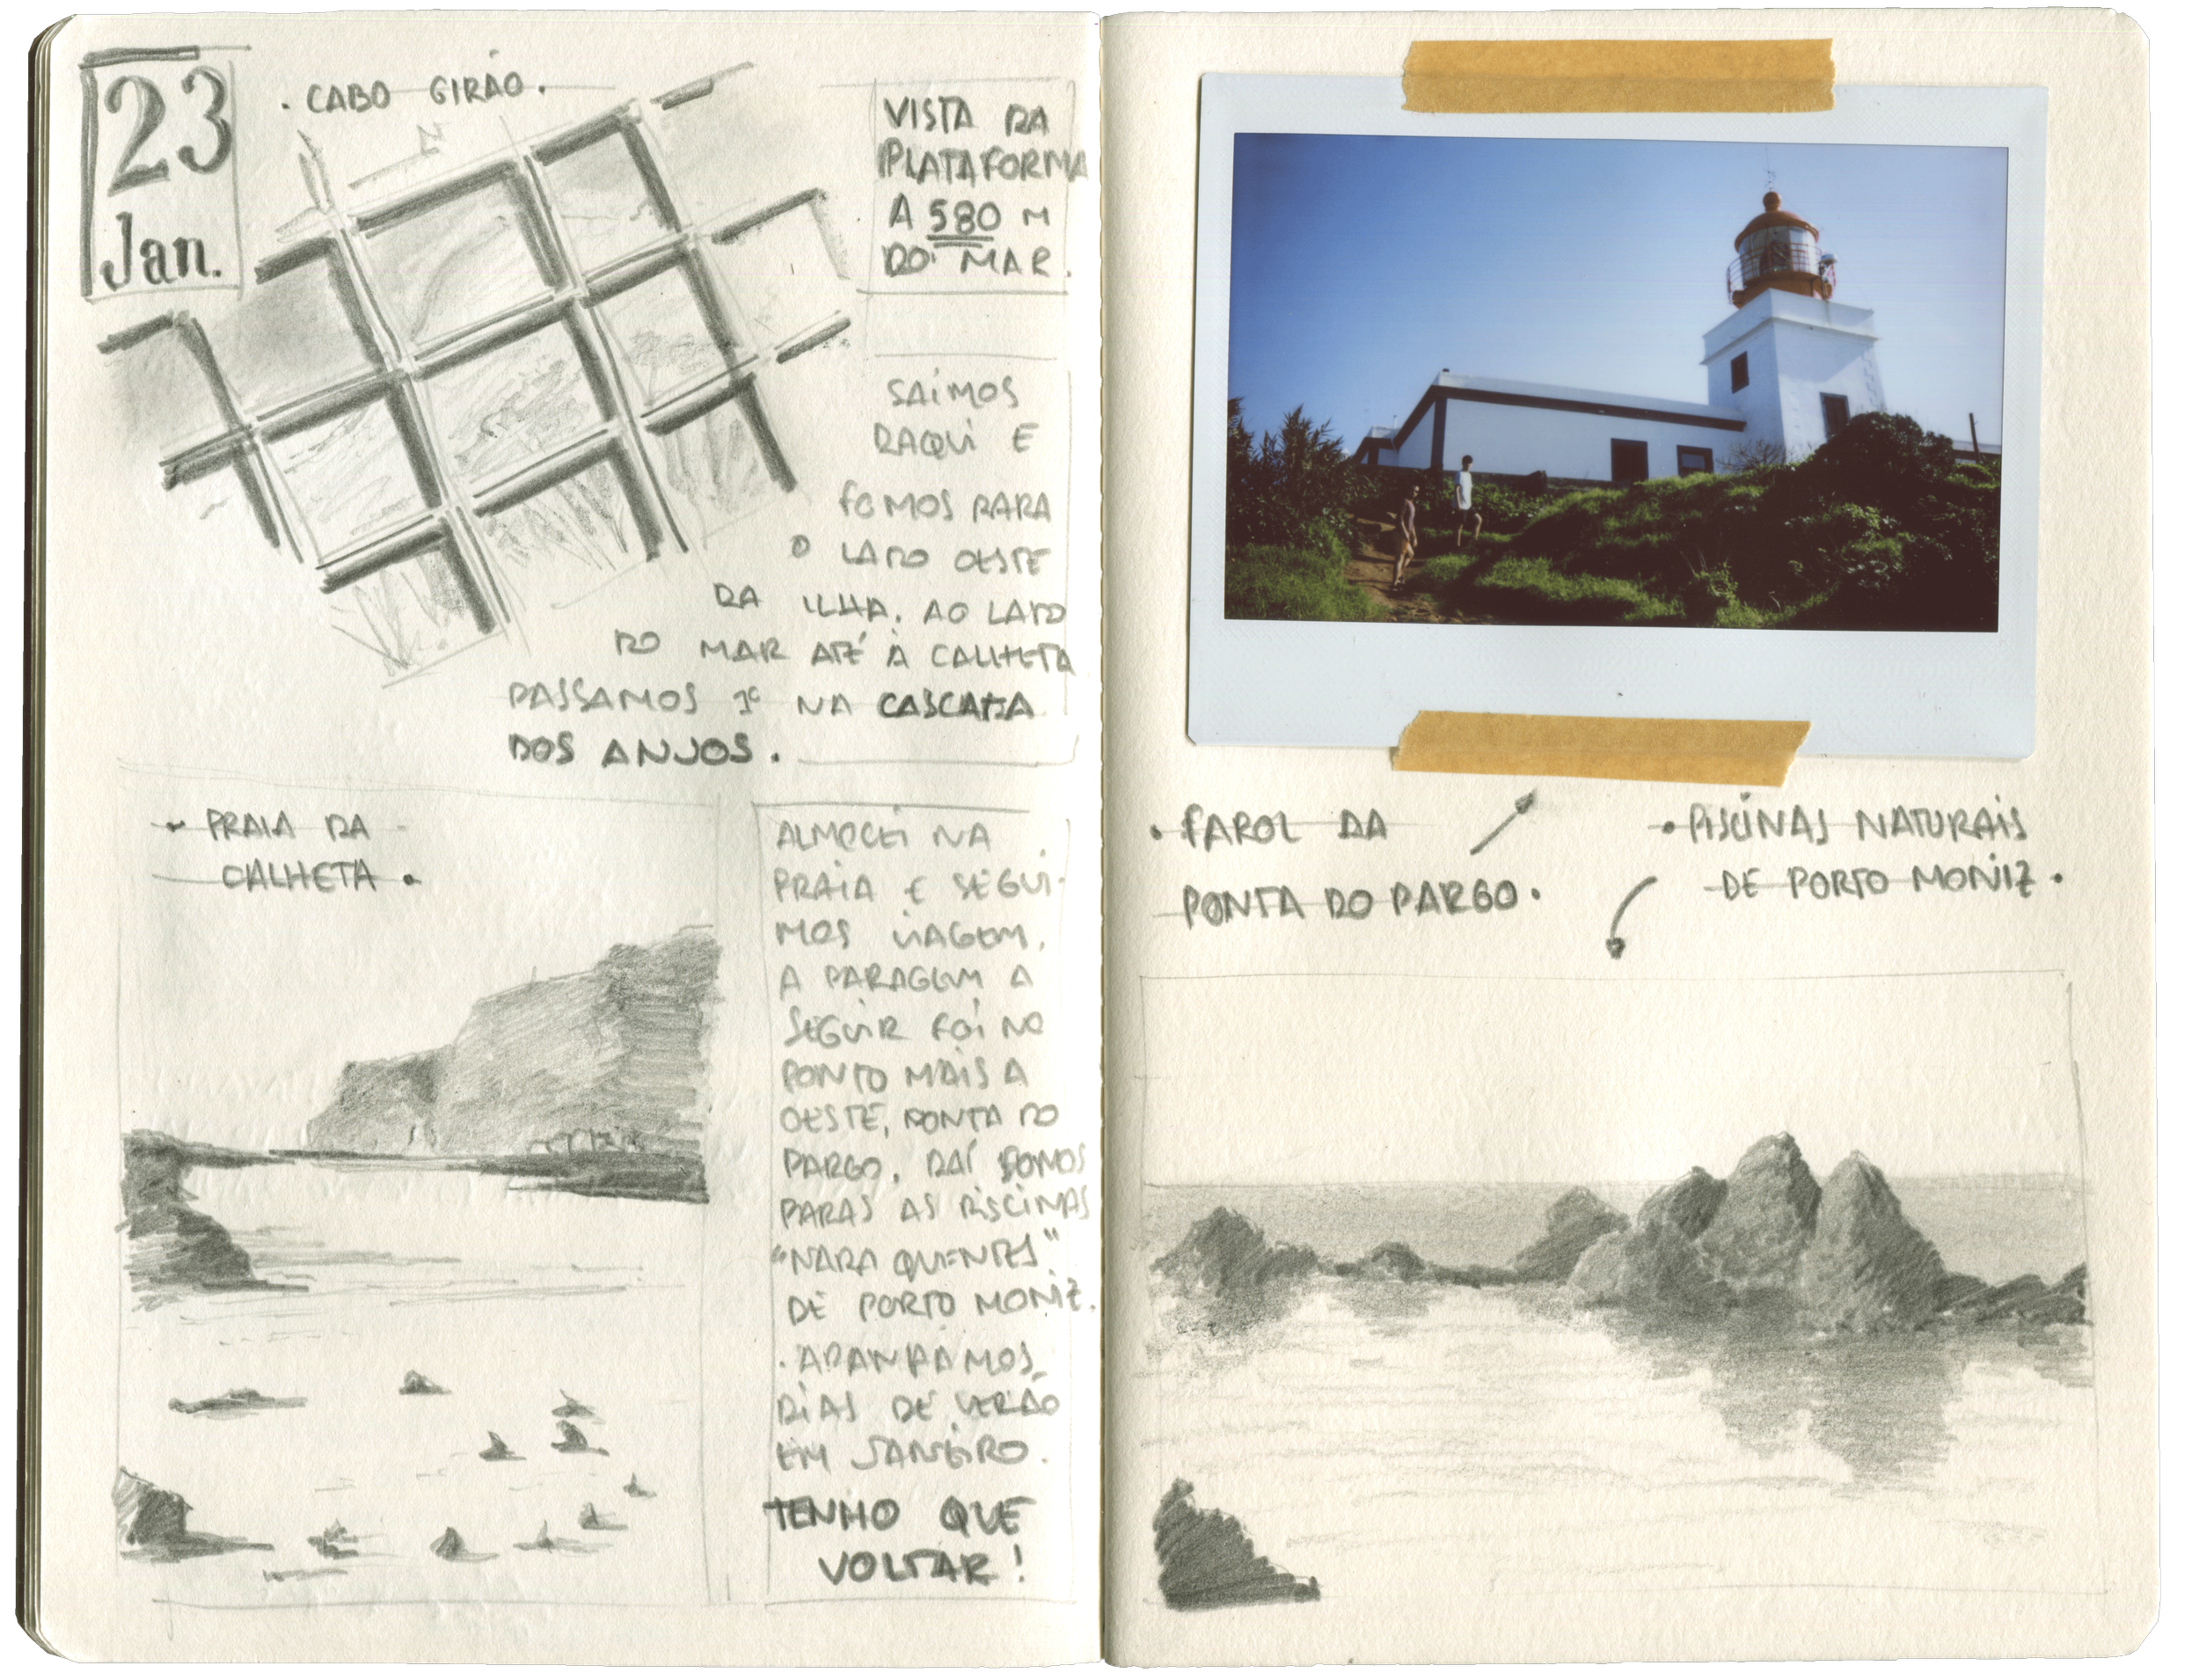 23
Jan.
. CABO GIRÃO.
VISTA DA
PLATAFORMA
A 580 M
DO MAR.
SAÍMOS
DAQUI E
FOMOS PARA
O LADO OESTE
DA ILHA. AO LADO
DO MAR ATÉ À CALHETA
PASSAMOS 1º NA CASCATA
DOS ANJOS.
PRAIA DA
CALHETA.
ALMOCEI NA
PRAIA E SEGUI-
MOS VIAGEM.
A PARAGEM A
SEGUIR FOI NO
PONTO MAIS A
OESTE, PONTA DO
PARGO. DAÍ FOMOS
PARAS AS PISCINAS
"NADA QUENTES"
DE PORTO MONIZ.
. APANHAMOS
DIAS DE VERÃO
EM JANEIRO.
TENHO QUE
VOLTAR!
. FAROL DA
PONTA DO PARGO.
. PISCINAS NATURAIS
DE PORTO MONIZ.